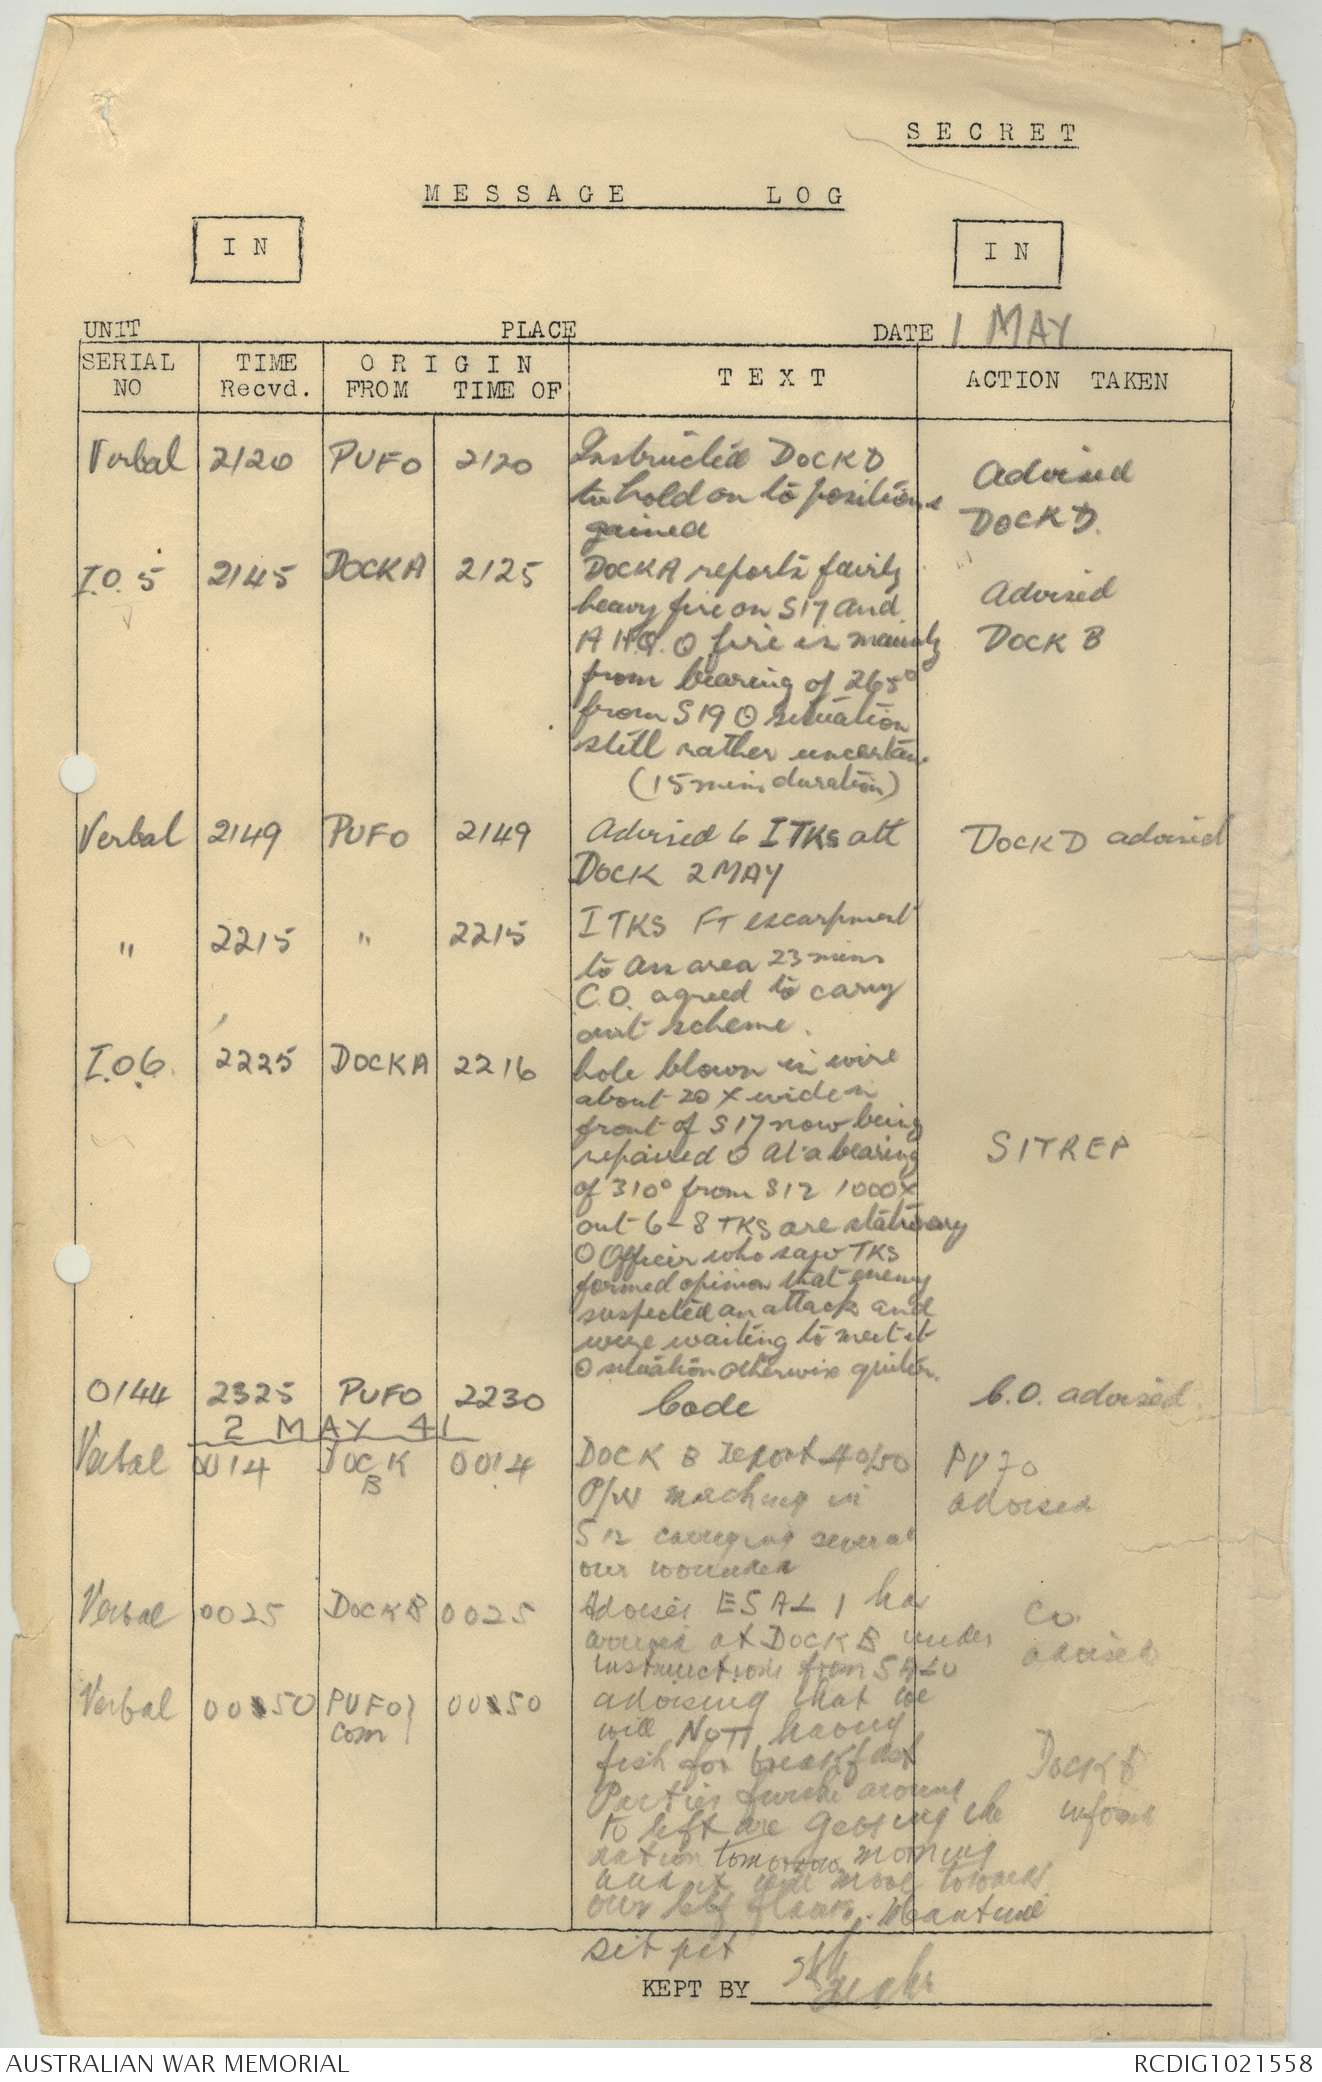 SECRET
MESSAGE LOG
IN IN
UNIT PLACE DATE 1 MAY
SERIAL NO TIME Recvd. ORIGIN FROM TIME OF TEXT ACTION TAKEN
Verbal 2120 PUFO 2120 Instructed DOCK D
to hold on to positions
gained
Advised
DOCK D.
I.O.5 2145 DOCKA 2125 DOCKA reports fairly
heavy fire on S17 and
A H.Q. O fire is mainly
from bearing of 265°
from S19 O situation
still rather uncertain
(15 mins duration)
Advised
DOCK B
Verbal 2149 PUFO 2149 Advised 6 I TKS att
DOCK 2 MAY
DOCK D advised
" 2215 " 2215 I TKS FT escarpment
to Ass area 23 mins
C.O. agreed to carry
out scheme.
I.O6. 2225 DOCKA 2216 hole blown in wire
about 20 X wide in
front of S17 now being
repaired O At a bearing
of 310° from S12 1000X
out 6-8 TKS are stationary
O Officer who saw TKS
formed opinion that enemy
suspected an attack and
were waiting to meet it
O situation otherwise quieter.
SITREP
0144 2325 PUFO 2230 Code C.O. advised
2 MAY 41
Verbal 0014 DOCK B 0014 DOCK B report 40/50
P/W marching in
S12 carrying several
our wounded
advised
Verbal 0025 DOCK B 0025 Advises ESAL 1 has
arrived at DOCK B under
instructions from SALU
CO
advised
Verbal 0050 PUFO com 0050 advising that we
will NOTT having
fish for breakfast
Parties around
to left are
tomorrow morning
and it will move towards
our left flank. Meantime
sit pet
DOCK B
KEPT BY
AUSTRALIAN WAR MEMORIAL RCDIG1021558